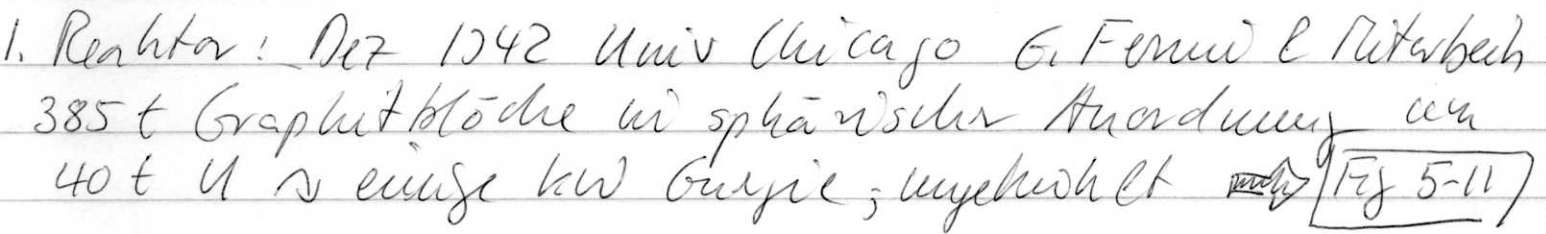 1. Reaktor: Dez 1942 Univ Chicago E. Fermi & Mitarbeit
385 t Graphitblöcke in sphärischer Anordnung um
40 t U ~ einige kW Energie; ungekühlt ⇒ Fig 5-11